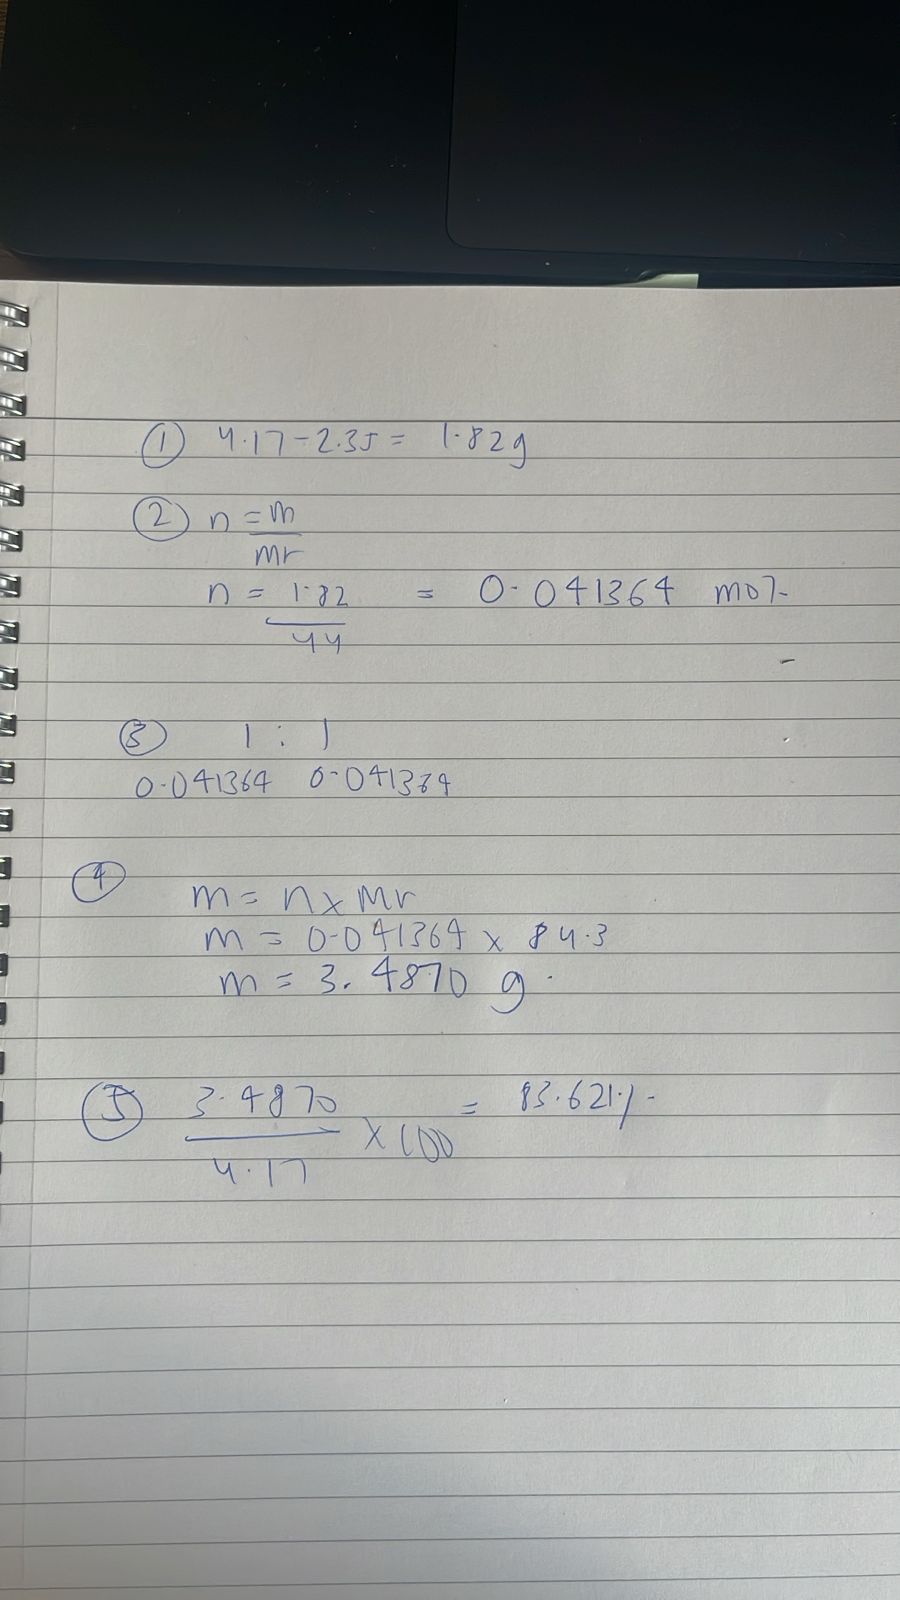 ① 4.17-2.35 = 1.82g
② n = m
mr
n = 1.82 = 0.041364 mol.
44
③ 1 : 1
0.041364 0.041364
④
m = n x Mr
m = 0.041364 x 84.3
m = 3.4870 g.
⑤ 3.4870 x 100 = 83.621%.
4.17